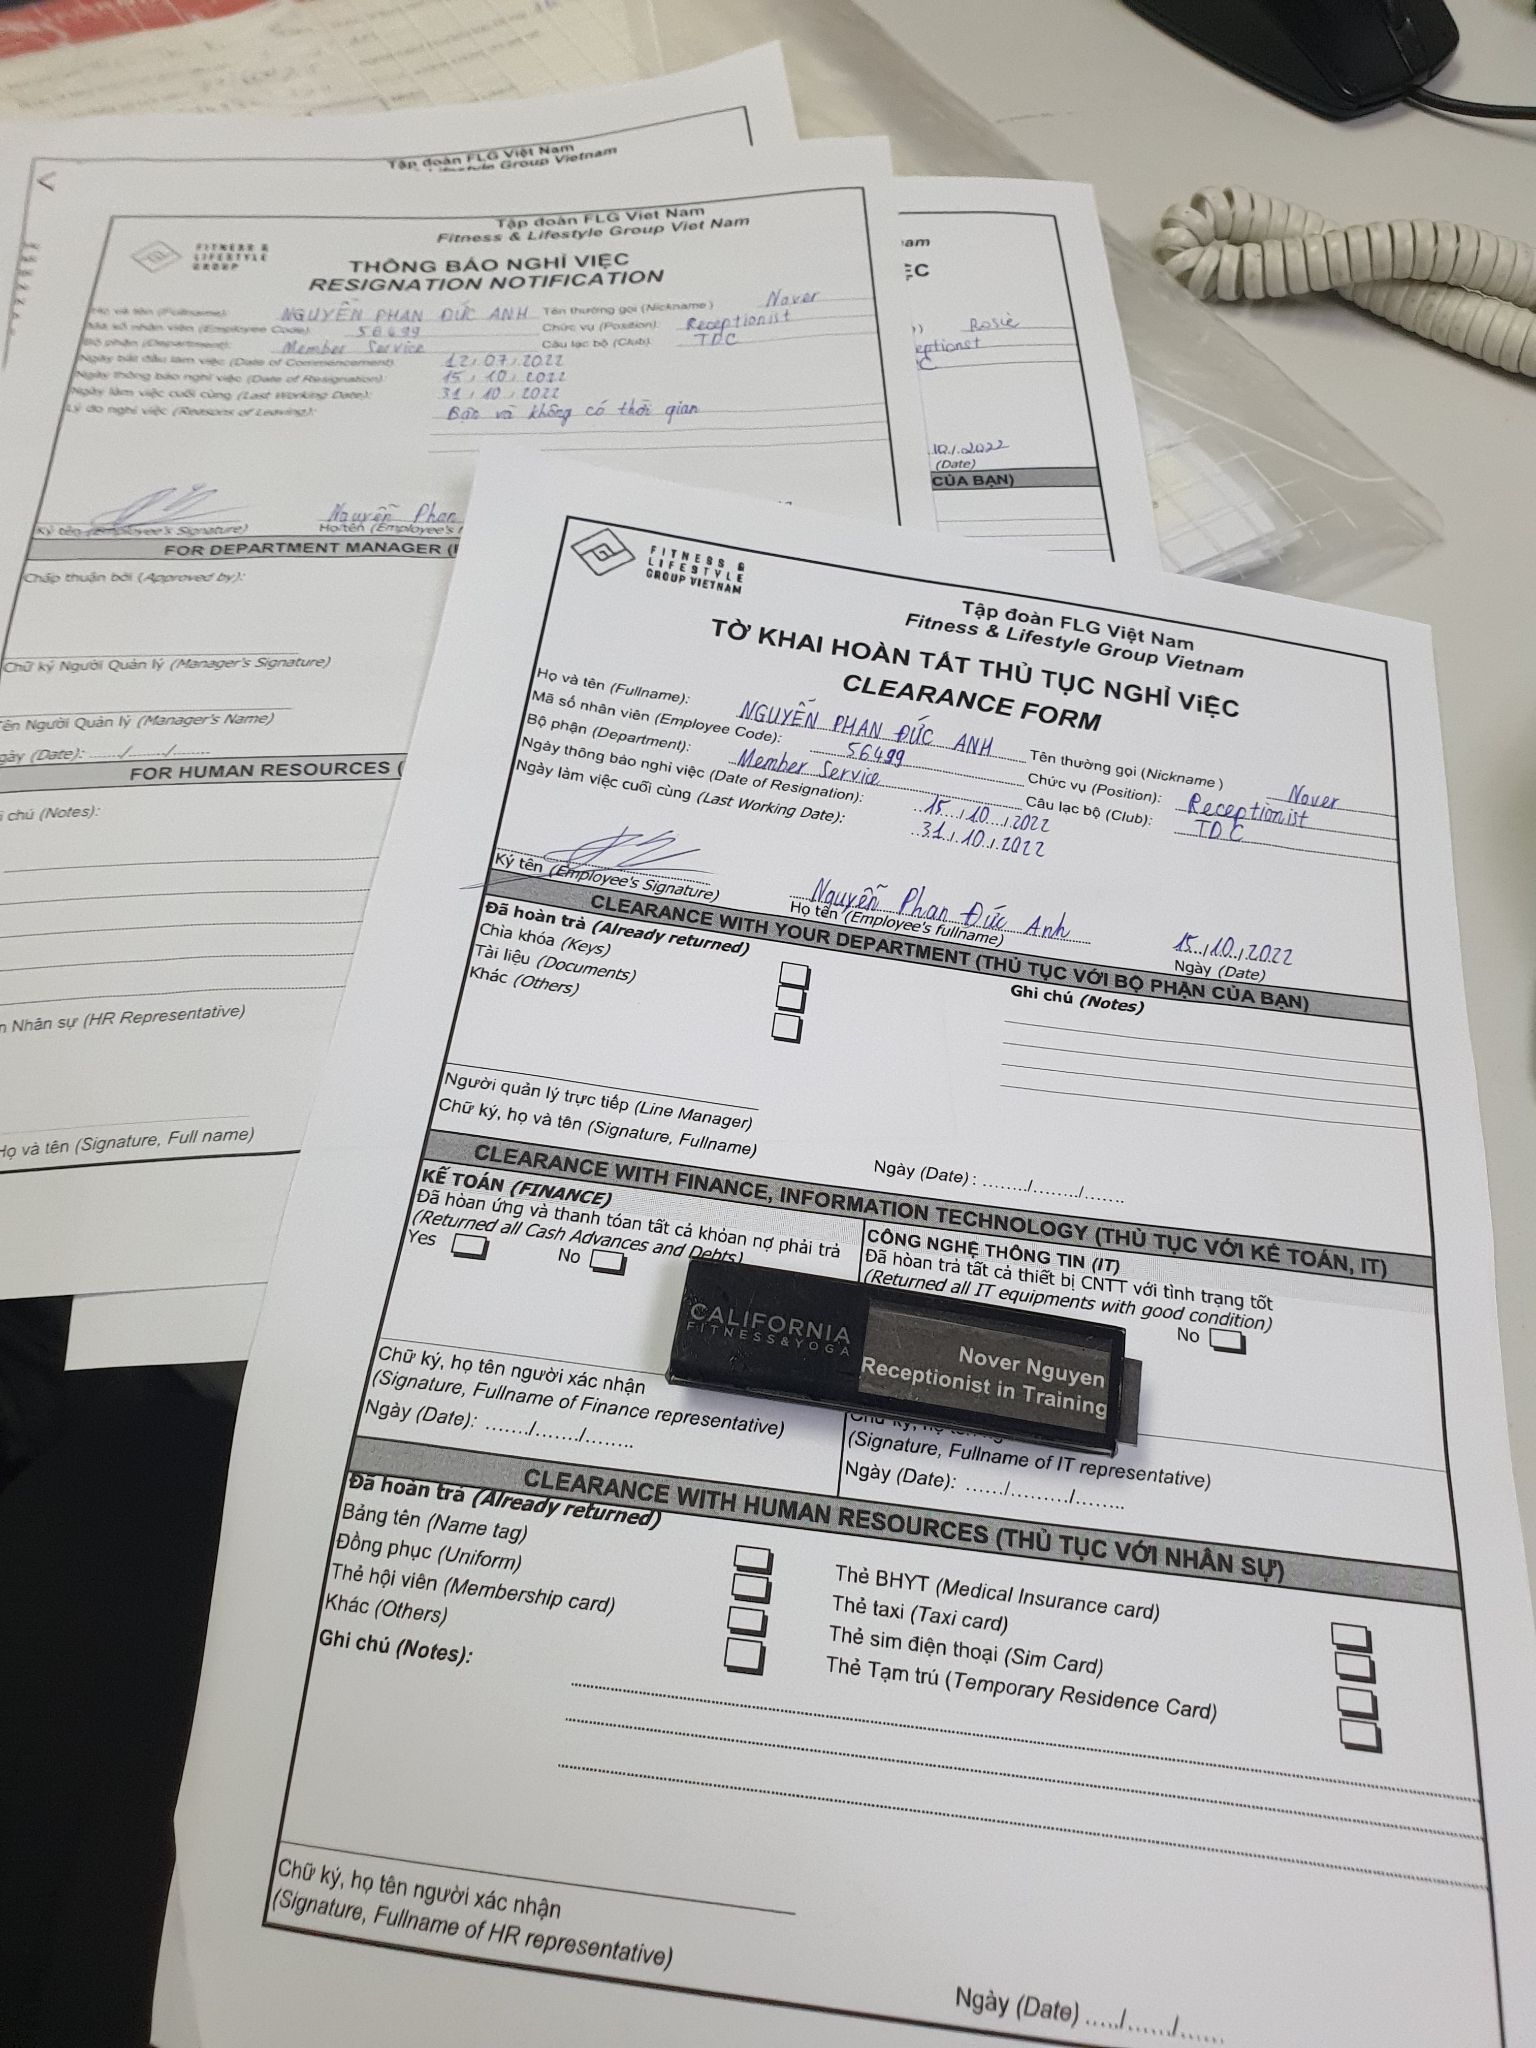 Tập đoàn FLG Việt Nam
Lifestyle Group Vietnam
Tập đoàn FLG Viet Nam
Fitness & Lifestyle Group Viet Nam
FITNESS &
LIFESTYLE
GROUP
THÔNG BÁO NGHỈ VIỆC
RESIGNATION NOTIFICATION
Họ và tên (Fullname): NGUYỄN PHAN ĐỨC ANH Tên thường gọi (Nickname) Nover
Mã số nhân viên (Employee Code): 56499 Chức vụ (Position): Receptionist
Bộ phận (Department): Member Service Câu lạc bộ (Club): TDC
Ngày bắt đầu làm việc (Date of Commencement): 12/07/2022
Ngày thông báo nghỉ việc (Date of Resignation): 15/10/2022
Ngày làm việc cuối cùng (Last Working Date): 31/10/2022
Lý do nghỉ việc (Reasons of Leaving): Bận và không có thời gian
Nguyễn Phan
Ký tên (Employee's Signature) Họ tên (Employee's
FOR DEPARTMENT MANAGER
Chấp thuận bởi (Approved by):
Chữ ký Người Quản lý (Manager's Signature)
ên Người Quản lý (Manager's Name)
gày (Date): ....../......./.......
FOR HUMAN RESOURCES (
i chú (Notes):
n Nhân sự (HR Representative)
Họ và tên (Signature, Full name)
am
ỆC
Rosie
eptionst
C
10/2022
(Date)
CỦA BẠN)
FITNESS &
LIFESTYLE
GROUP VIETNAM
Tập đoàn FLG Việt Nam
Fitness & Lifestyle Group Vietnam
TỜ KHAI HOÀN TẤT THỦ TỤC NGHỈ VIỆC
CLEARANCE FORM
Họ và tên (Fullname): NGUYỄN PHAN ĐỨC ANH Tên thường gọi (Nickname) Nover
Mã số nhân viên (Employee Code): 56499 Chức vụ (Position): Receptionist
Bộ phận (Department): Member Service Câu lạc bộ (Club): TDC
Ngày thông báo nghỉ việc (Date of Resignation): 15/10/2022
Ngày làm việc cuối cùng (Last Working Date): 31/10/2022
Nguyễn Phan Đức Anh 15/10/2022
Ký tên (Employee's Signature) Họ tên (Employee's fullname) Ngày (Date)
CLEARANCE WITH YOUR DEPARTMENT (THỦ TỤC VỚI BỘ PHẬN CỦA BẠN)
Đã hoàn trả (Already returned) Ghi chú (Notes)
Chìa khóa (Keys)
Tài liệu (Documents)
Khác (Others)
Người quản lý trực tiếp (Line Manager)
Chữ ký, họ và tên (Signature, Fullname) Ngày (Date) : ......../......../.......
CLEARANCE WITH FINANCE, INFORMATION TECHNOLOGY (THỦ TỤC VỚI KẾ TOÁN, IT)
KẾ TOÁN (FINANCE)
Đã hòan ứng và thanh tóan tất cả khỏan nợ phải trả
(Returned all Cash Advances and Debts)
Yes No
CÔNG NGHỆ THÔNG TIN (IT)
Đã hòan trả tất cả thiết bị CNTT với tình trạng tốt
(Returned all IT equipments with good condition)
No
CALIFORNIA
FITNESS & YOGA
Nover Nguyen
Receptionist in Training
Chữ ký, họ tên người xác nhận
(Signature, Fullname of Finance representative)
Ngày (Date): ......./......./........
(Signature, Fullname of IT representative)
Ngày (Date): ....../........./........
CLEARANCE WITH HUMAN RESOURCES (THỦ TỤC VỚI NHÂN SỰ)
Đã hoàn trả (Already returned)
Bảng tên (Name tag)
Đồng phục (Uniform)
Thẻ hội viên (Membership card)
Khác (Others)
Thẻ BHYT (Medical Insurance card)
Thẻ taxi (Taxi card)
Thẻ sim điện thoại (Sim Card)
Thẻ Tạm trú (Temporary Residence Card)
Ghi chú (Notes):
Chữ ký, họ tên người xác nhận
(Signature, Fullname of HR representative)
Ngày (Date) ...../......./.......